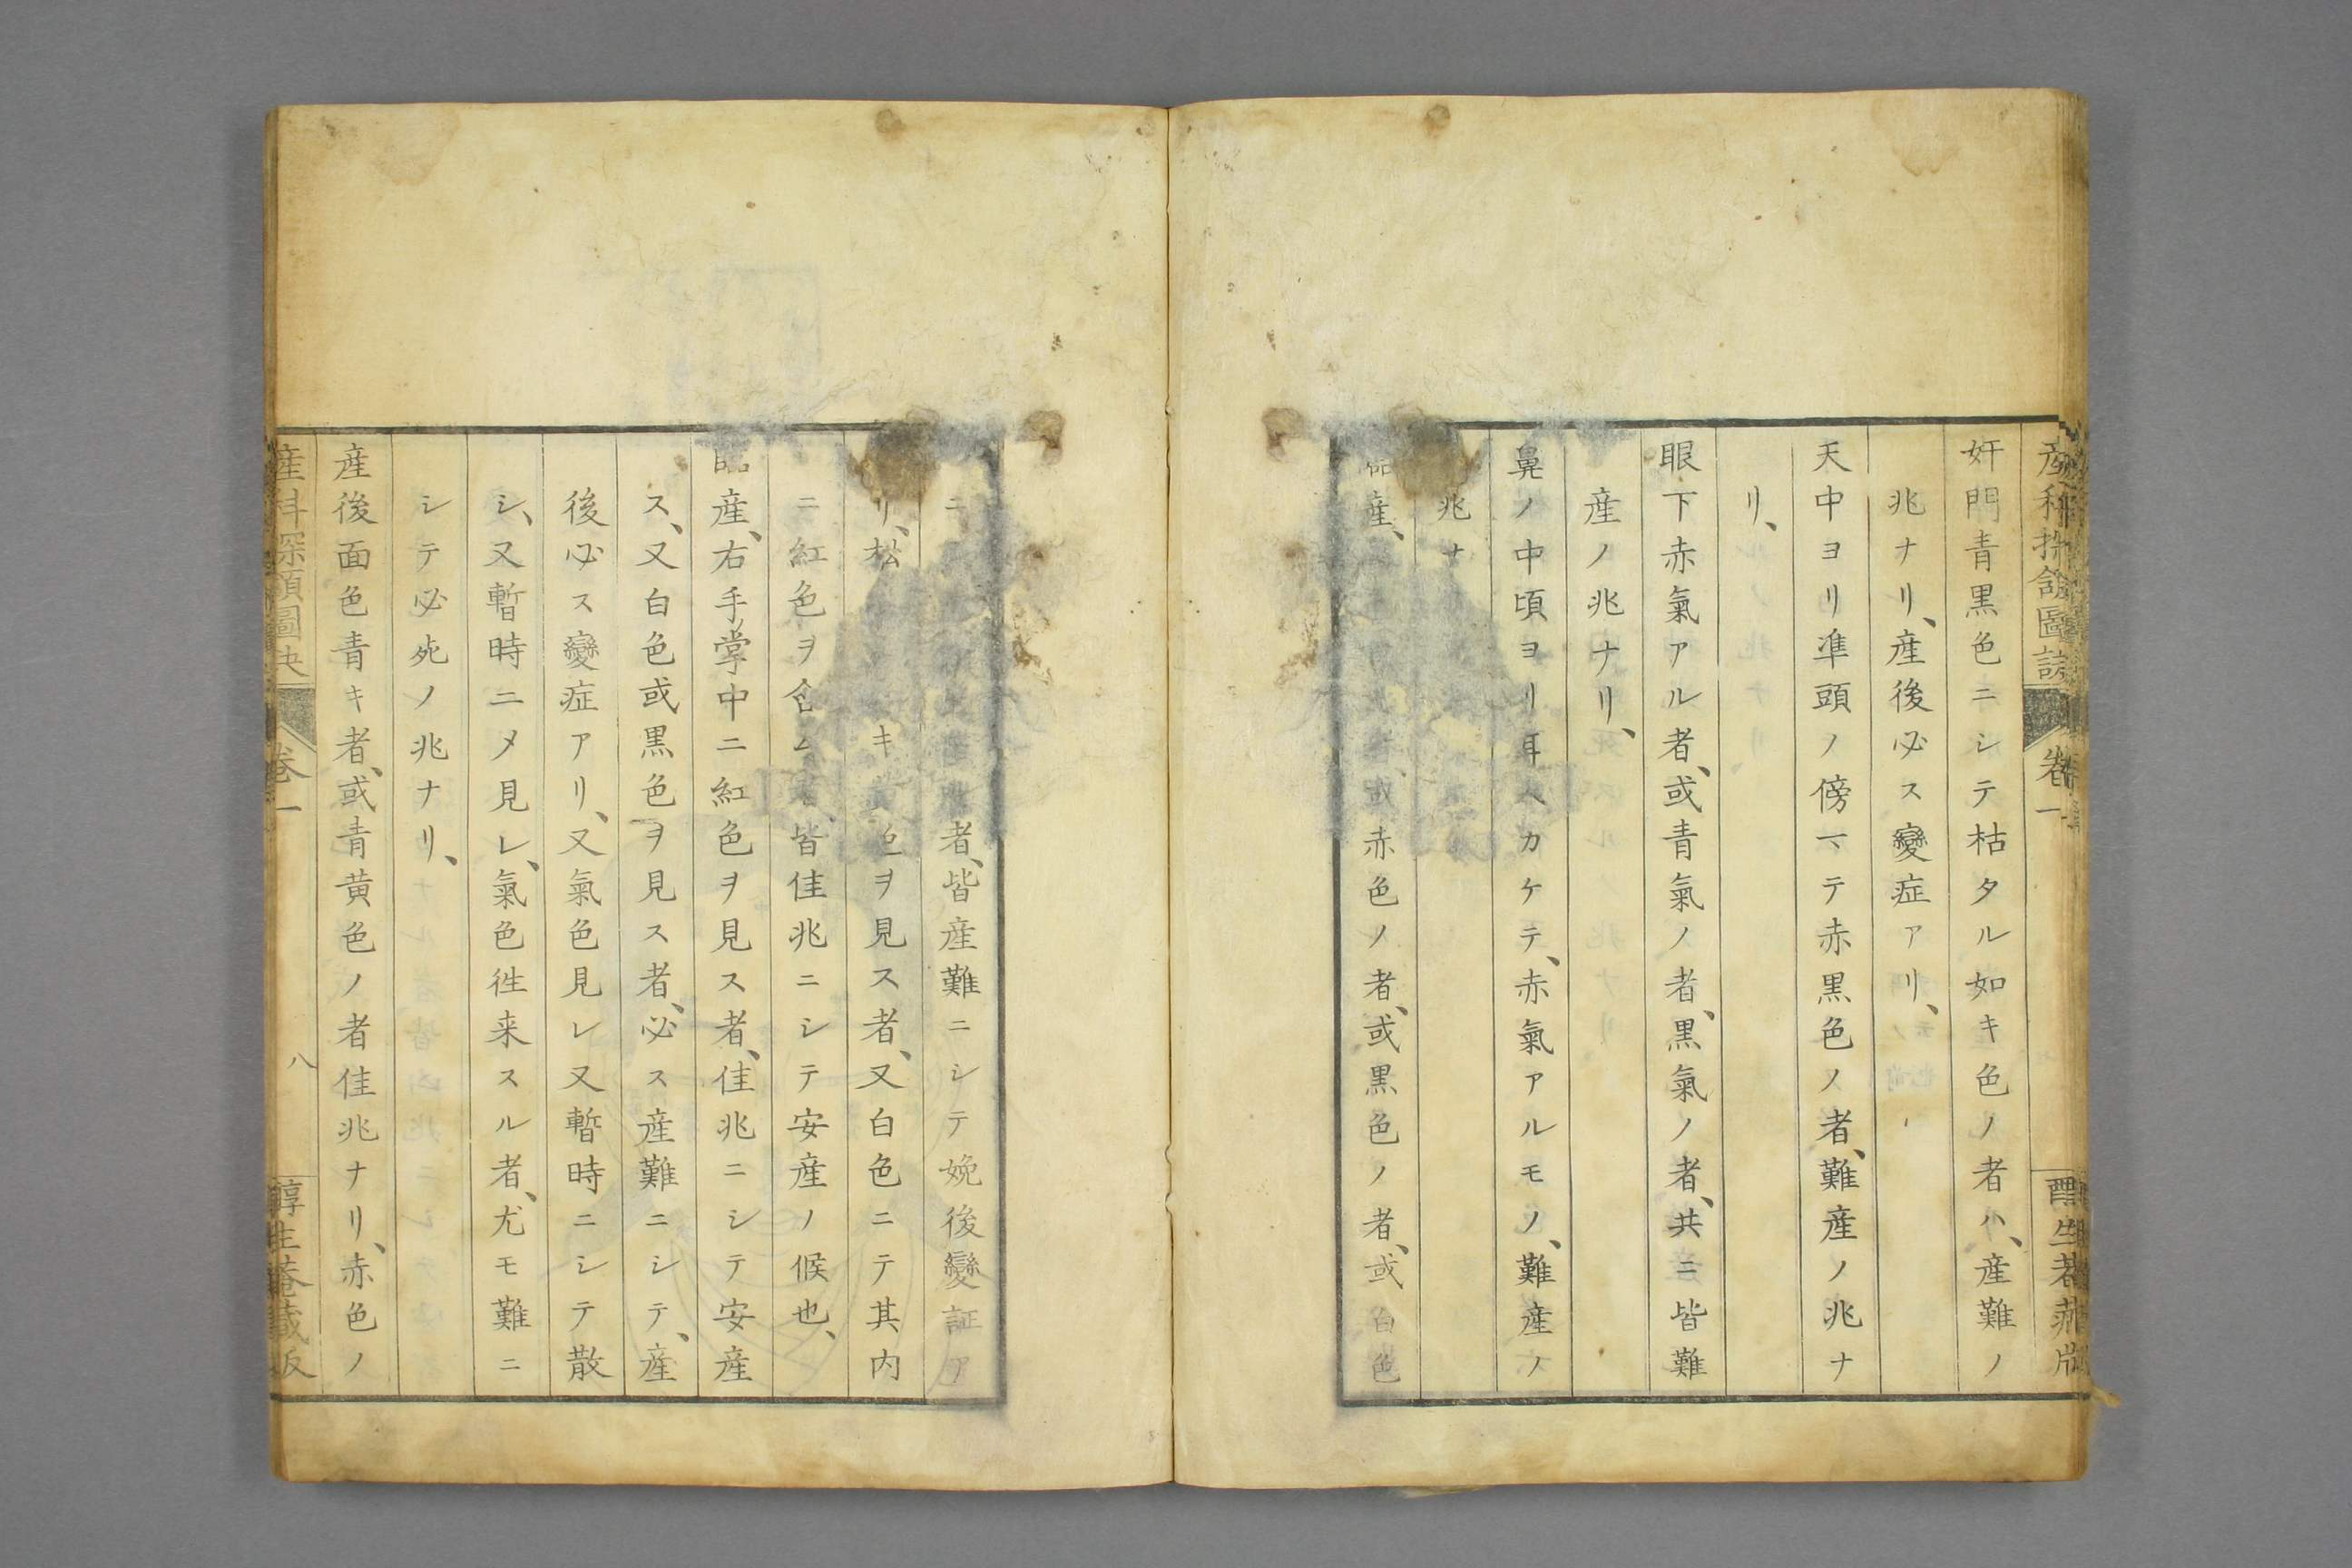 奸門青黒色ニシテ枯タル如キ色ノ者ハ、産難ノ
兆ナリ、産後必ス變症アリ、
天中ヨリ準頭ノ傍ニテ赤黒色ノ者、難産ノ兆ナ
リ、
眼下赤氣アル者、或青氣ノ者、黒氣ノ者、共ニ皆難
産ノ兆ナリ、
鼻ノ中頃ヨリ耳ヘカケテ、赤氣アルモノ、難産ノ
兆ナ
臨産、赤色ノ者、或黒色ノ者、或白色
ニ者、皆産難ニシテ娩後變証ア
リ、松キ色ヲ見ス者、又白色ニテ其内
ニ紅色ヲ含ム皆佳兆ニシテ安産ノ候也、
臨産、右手掌中ニ紅色ヲ見ス者、佳兆ニシテ安産
ス、又白色或黒色ヲ見ス者、必ス産難ニシテ、産
後必ス變症アリ、又氣色見レ又暫時ニシテ散
シ、又暫時ニメ見レ、氣色徃来スル者、尤モ難ニ
シテ必死ノ兆ナリ、
産後面色青キ者、或青黄色ノ者佳兆ナリ、赤色ノ
産科探頷圖訣
卷一
八
醇生菴蔵版